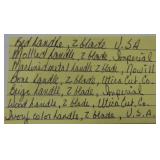 Red handle, 2 blade U.S.A
Mottled handle, 2 blade, Imperial
Marlin metal handle 2 blade,
Bone handle, 2 blade, Utica Cut. Co.
Beige handle, 2 blade, Imperial
Wood handle, 2 blade, Utica Cut. Co.
Ivory color handle, 2 blade, U.S.A.